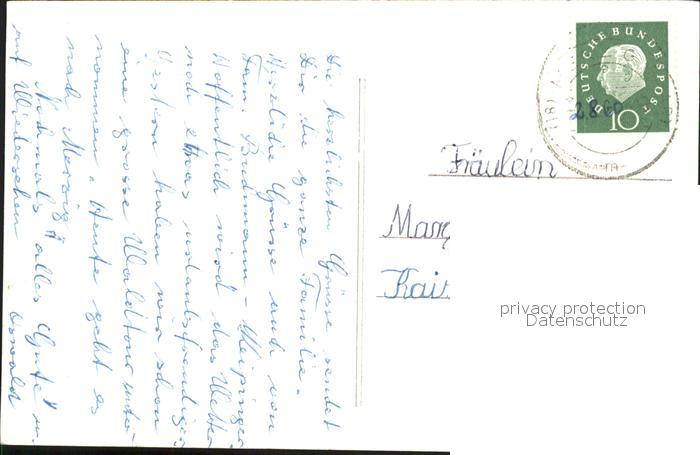 Die herzlichsten Grüsse sendet
Dir die ganze Familie.
Herzliche Grüsse auch von
Fam.
Hoffentlich wird das Wetter
noch etwas urlaubsfreudiger
Gestern haben wir schon
eine grosse Waldtour unter-
nommen. Heute geht es
nach Merzig.
Nochmals "alles Gute" u.
auf Wiedersehen Oswald
DEUTSCHE BUNDESPOST
10
Fräulein
Marg
Kai
privacy protection
Datenschutz